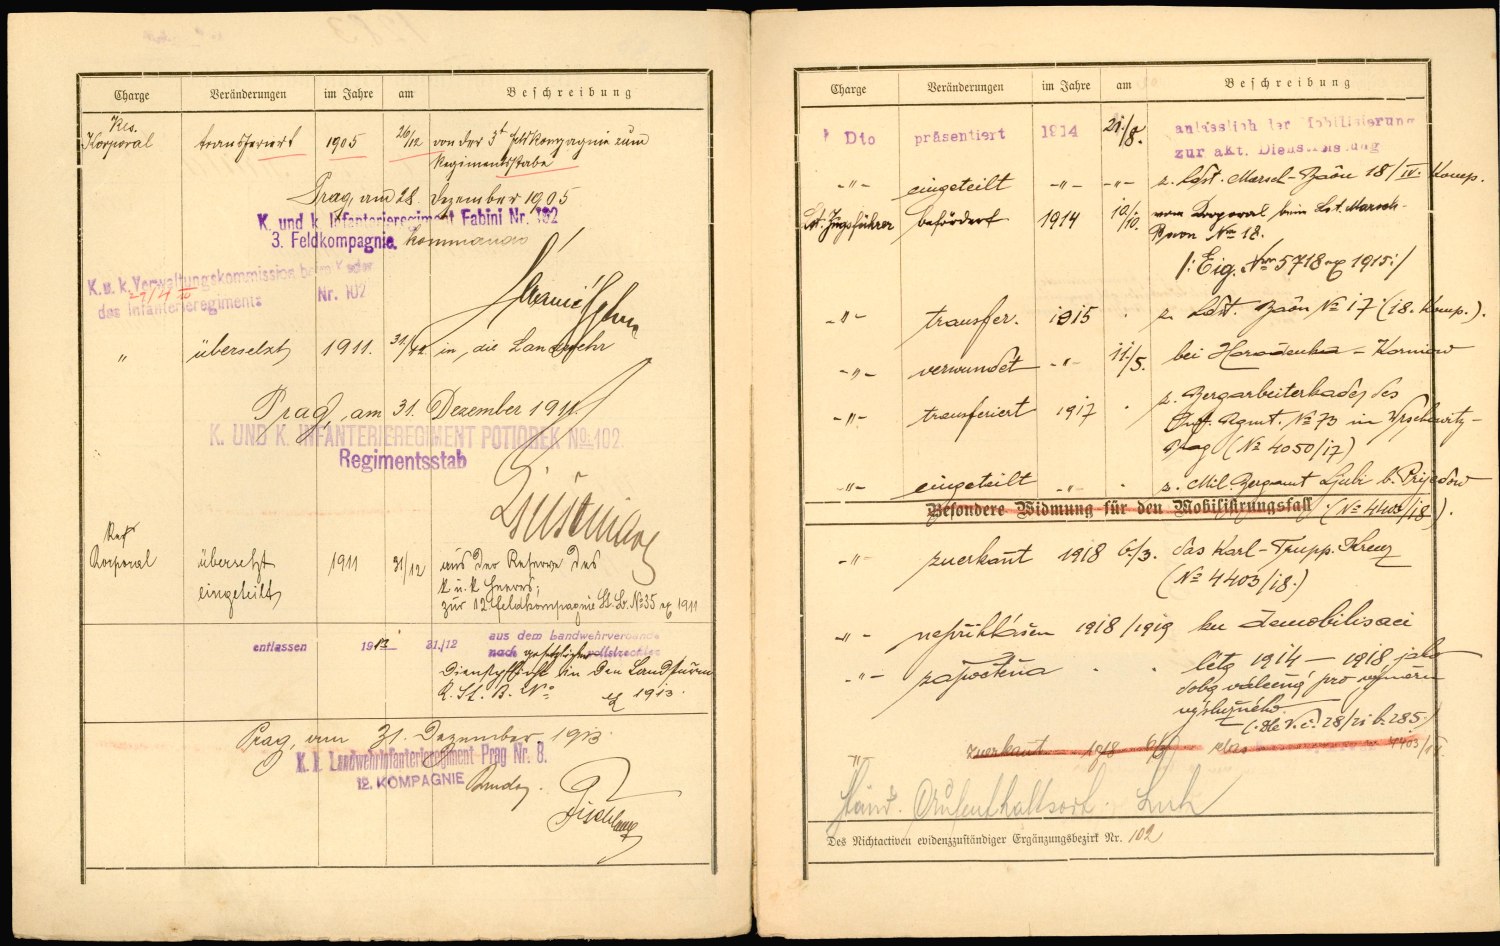 Charge Veränderungen im Jahre am Beschreibung
Res.
Korporal transferiert 1905 26/12 von der 3t Feldkompagnie zum
Regimentsstabe
Prag, am 28. Dezember 1905
K. und k. Infanterieregiment Fabini Nr. 102
3. Feldkompagnie. Kommando
K. u. k. Verwaltungskommission beim Kader
des Infanterieregiments Nr. 102
" übersetzt 1911. 31/12 in die Landwehr
Prag, am 31. Dezember 1911.
K. UND K. INFANTERIEREGIMENT POTIOREK No. 102.
Regimentsstab
Res
Korporal übersetzt 1911 31/12 aus der Reserve des
eingeteilt k. u. k. Heeres;
zur 12. Feldkompagnie St. B. No 35 ex 1911
entlassen 1913 31./12 aus dem Landwehrverbande
nach gesetzlicher vollstreckter
Dienstpflicht in den Landsturm
R. St. B. No ex 1913.
Prag, am 31. Dezember 1913.
K. k. Landwehrinfanterieregiment Prag Nr. 8.
12. KOMPAGNIE
Charge Veränderungen im Jahre am Beschreibung
Dto präsentiert 1914 21./8. anlässlich der Mobilisierung
zur akt. Dienstleistung
-"- eingeteilt -"- -"- z. Ldst. Marsch-Baon 18/IV. Komp.
Lst. Zugsführer befördert 1914 10/10. vom Korporal beim Lst. Marsch-
Baon No 18.
/: Eig. No 5718 ex 1915:/
-"- transfer. 1915 . z. Ldst. Baon No 17 (18. Komp.).
-"- verwundet -"- 11./5. bei Horodenka - Korniow
-"- transferiert 1917 . z. Bergarbeiterkader des
Inf. Regmt. No 73 in Wrschowitz-
Prag (No 4050/17)
-"- eingeteilt -"- . z. Mil. Bergamt Ljubi b. Prijedow
Besondere Widmung für den Mobilisirungsfall (No 4403/18).
-"- zuerkannt 1918 6./3. das Karl-Trupp. Kreuz
(No 4403/18.)
-"- nepřihlášen 1918/1919 ku demobilisaci
-"- započtena . . léta 1914 - 1918, jako
doba válečná pro výměru
výslužného.
(: dle V. č. 28/21 b. 285:/
" zuerkannt 1918 6/3 4403/18.
Ständ. Aufenthaltsort.
Des Nichtactiven evidenzzuständiger Ergänzungsbezirk Nr. 102